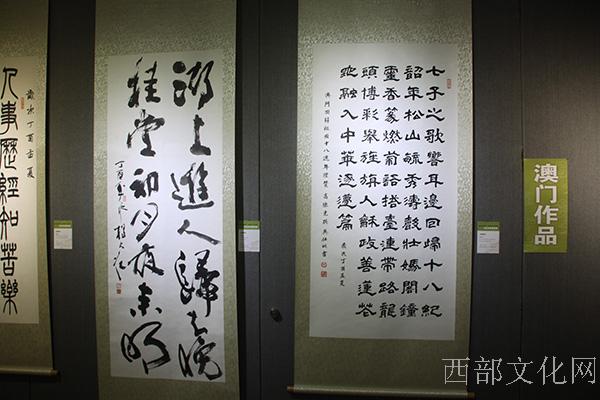 澳门作品
七子之歌響耳邊回歸十八紀
韶年松山毓秀濤聲壯媽閣鐘
靈香篆燃葡語搭臺連帶路龍
頭傳彩舉旌旗人龢政善蓮花
地融入中華逐夢篇
澳門回歸祖國十八週年禮贊
歲次丁酉孟夏
湖上進人歸去晚
桂堂初月夜未明
人事歷經知苦樂
歲次丁酉孟夏
西部文化网